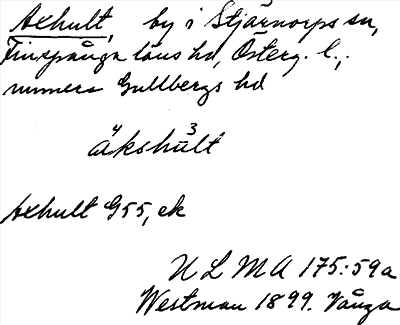 Axhult, by i Stjärnorps sn,
Finspånga läns hd, Österg. l.,
numera Gullbergs hd
4 3
äkshult
Axhult G55, ek
ULMA 175:59a
Westman 1899. Vånga